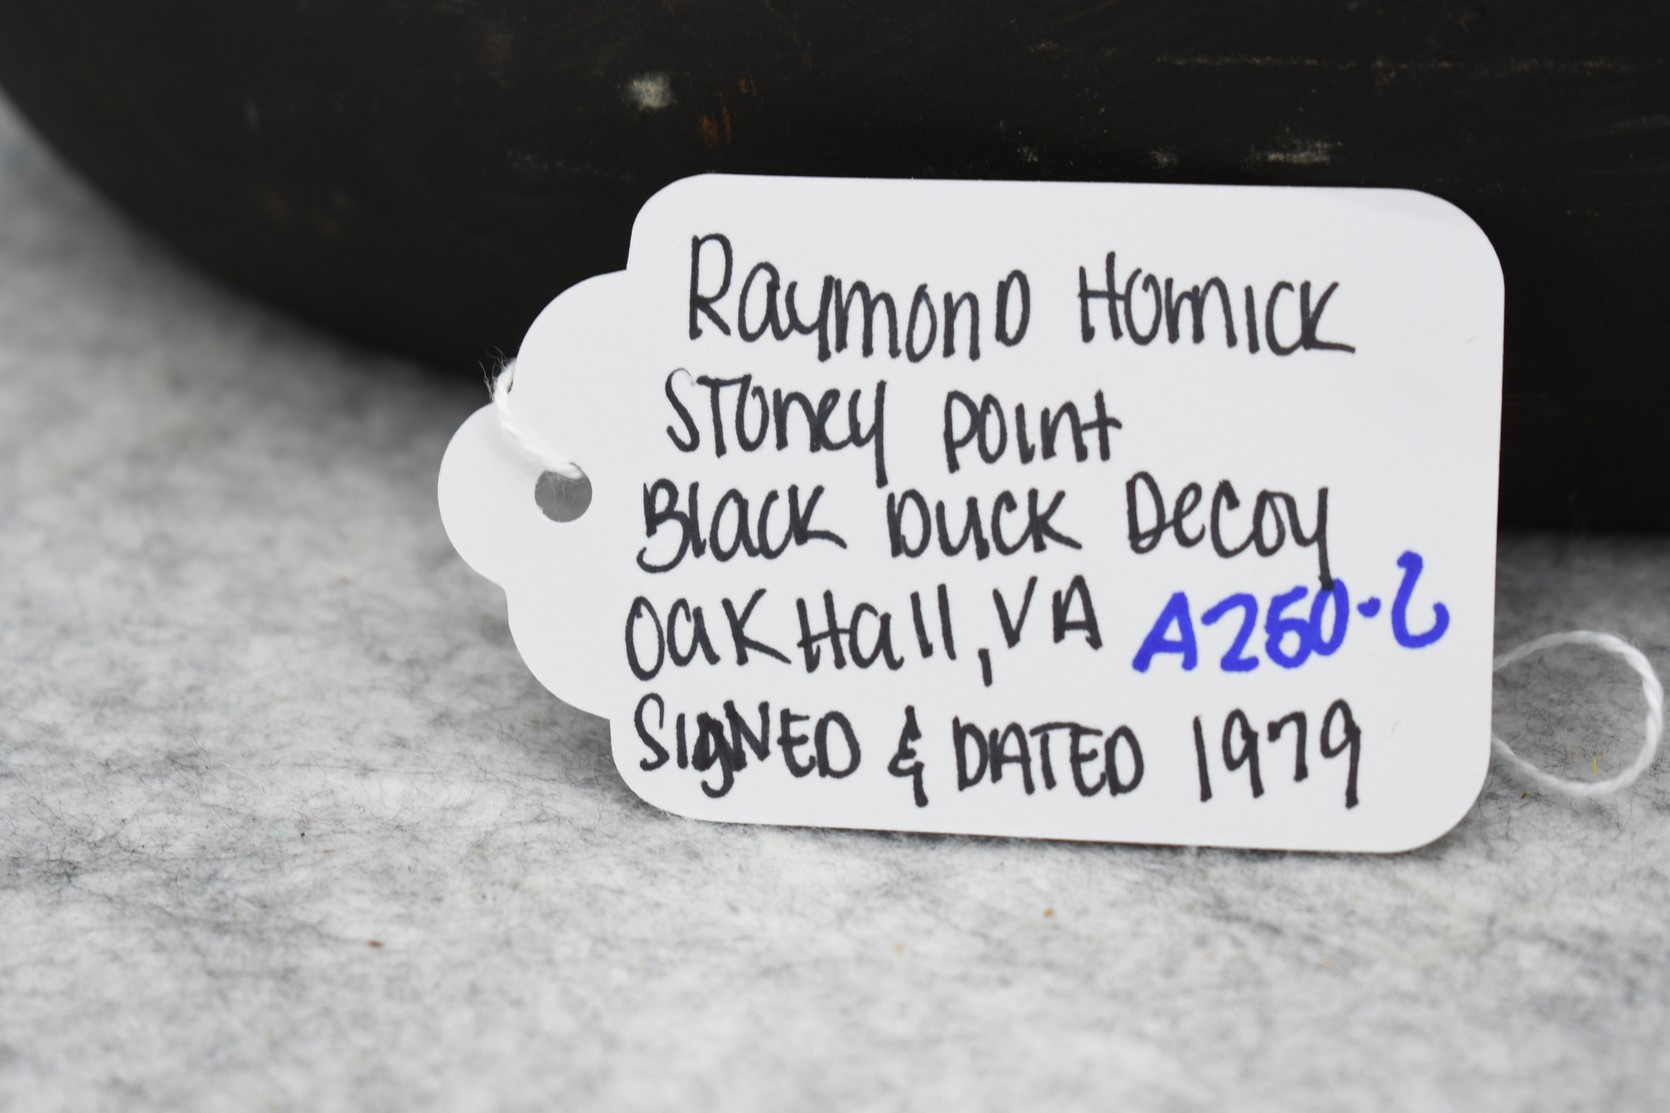 Raymond Hornick
Stoney Point
Black Duck Decoy
Oak Hall, VA A260-2
SIGNED & DATED 1979